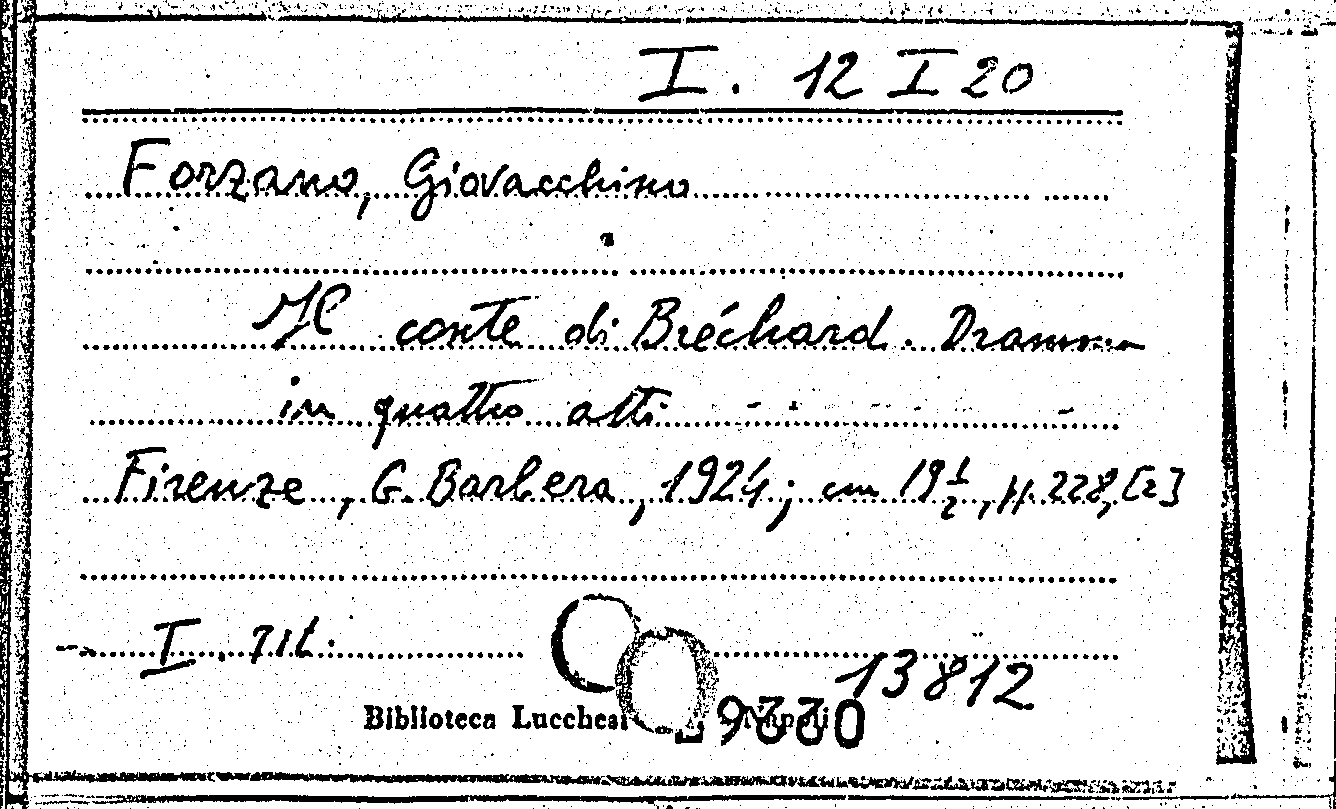 I. 12 I 20
Forzano, Giovacchino
Il conte di Bréchard. Dramma
in quattro atti
Firenze, G. Barbera, 1924; cm 19 1/2, pp. 228, [2]
I. tit.
13812
Biblioteca Lucchesi Napoli